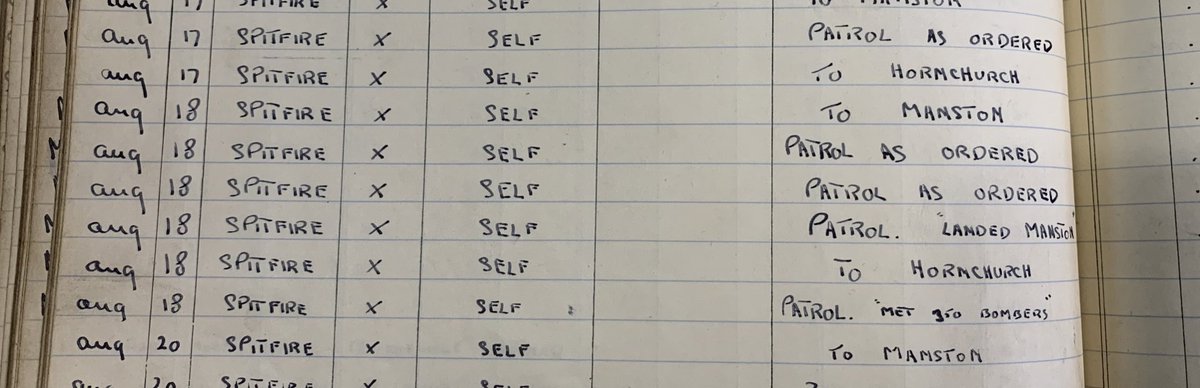 aug 17 SPITFIRE X SELF TO MANSTON
aug 17 SPITFIRE X SELF PATROL AS ORDERED
aug 17 SPITFIRE X SELF TO HORNCHURCH
aug 18 SPITFIRE X SELF TO MANSTON
aug 18 SPITFIRE X SELF PATROL AS ORDERED
aug 18 SPITFIRE X SELF PATROL AS ORDERED
aug 18 SPITFIRE X SELF PATROL. "LANDED MANSTON"
aug 18 SPITFIRE X SELF TO HORNCHURCH
aug 18 SPITFIRE X SELF PATROL. "MET BOMBERS"
aug 20 SPITFIRE X SELF TO MANSTON
aug 20 SPITFIRE X SELF